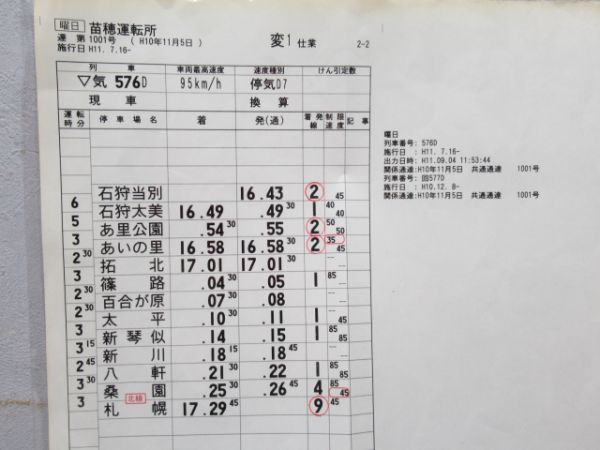 曜日 苗穂運転所
運 第 1001号 ( H10年11月5日 ) 変1 仕業 2-2
施行日 H11. 7.16-
列 車 車両最高速度 速度種別 けん引定数
▽気 576D 95km/h 停気D7
現 車 換 算
運転時分 停車場名 着 発(通) 着発線 制限速度 記事
石狩当別 16.43 2 45
6
石狩太美 16.49 .49 30 1 40 40
5
あ里公園 .54 30 .55 2 50 50
3
あいの里 16.58 16.58 30 2 35 45
2 30
拓北 17.01 17.01 30
3
篠路 .04 30 .05 1 85
2 30
百合が原 .07 30 .08
2
太平 .10 30 .11 1 45
3
新琴似 .14 .15 1 85
3 15
新川 .18 15 .18 45
2 45
八軒 .21 30 .22 1 85
3 30
桑園 .25 30 .26 45 4 85 45
北線
3
札幌 17.29 45 9 45
曜日
列車番号 : 576D
施行日 : H11. 7.16-
出力日時 : H11.09.04 11:53:44
関係通達:H10年11月5日 共通通達 1001号
列車番号: 回577D
施行日 : H10.12. 8-
関係通達:H10年11月5日 共通通達 1001号